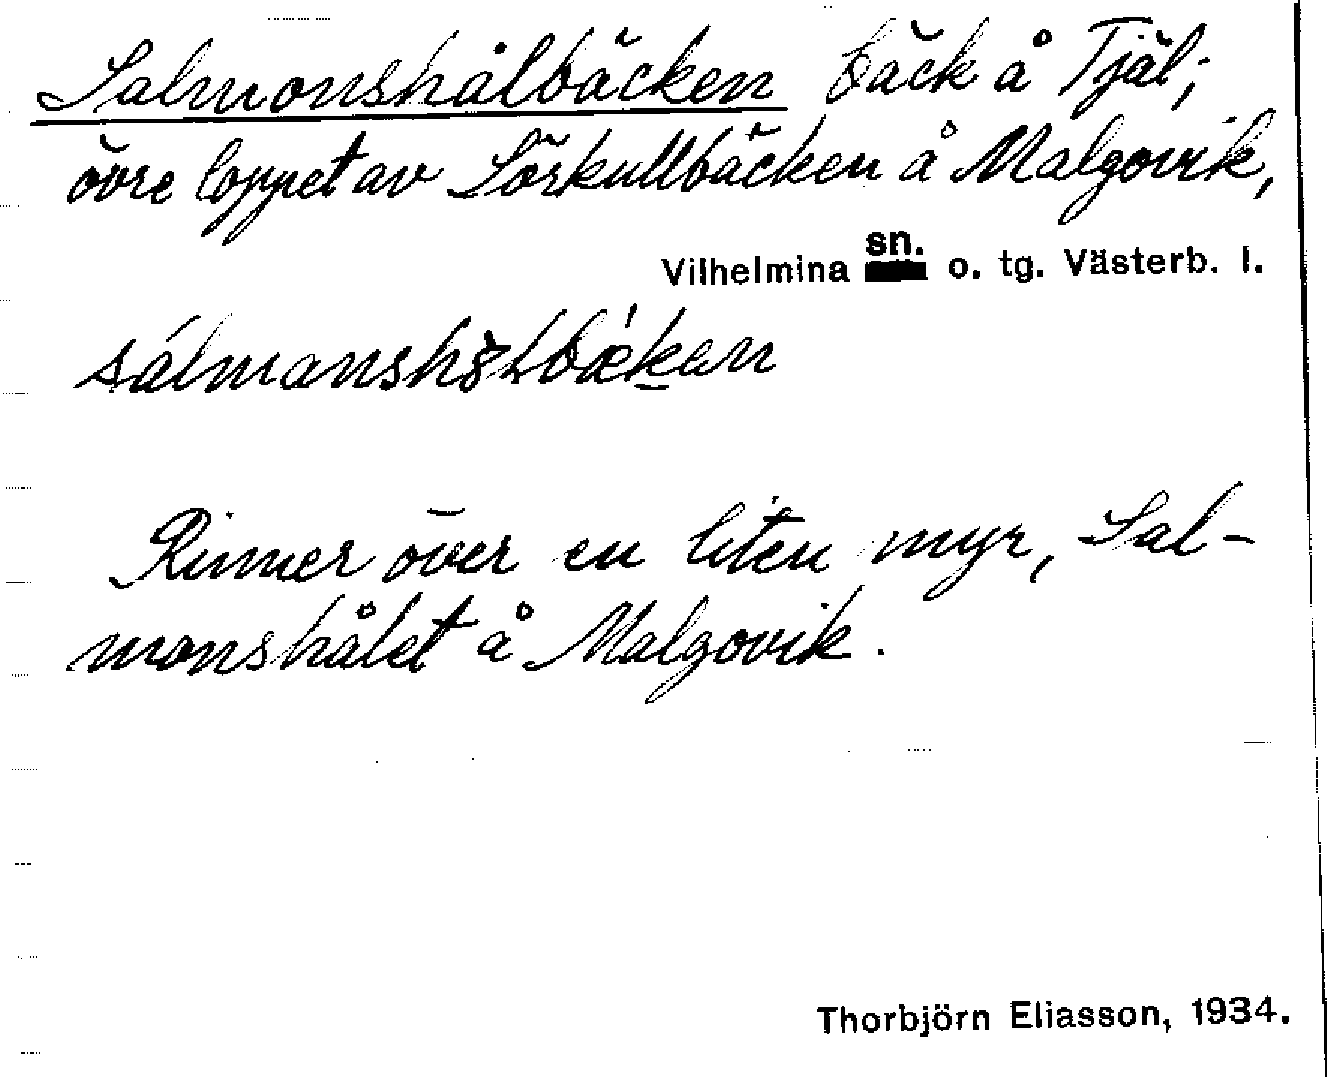 Salmonshålbäcken bäck å Tjäl;
övre loppet av Sörkullbäcken å Malgovik,
Vilhelmina sn. o. tg. Västerb. l.
Rinner över en liten myr, Sal-
monshålet å Malgovik.
Thorbjörn Eliasson, 1934.